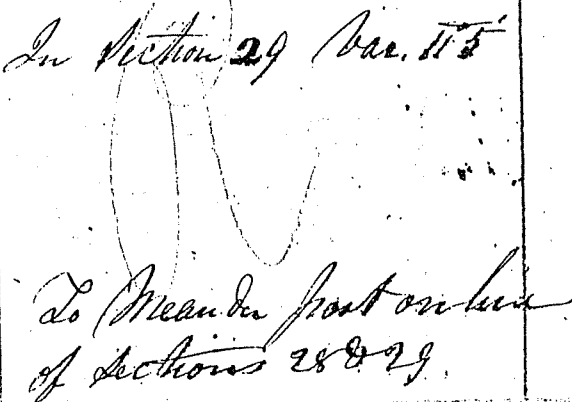 In Section 29 Var.
To Meander post on line
of Sections 28 & 29.